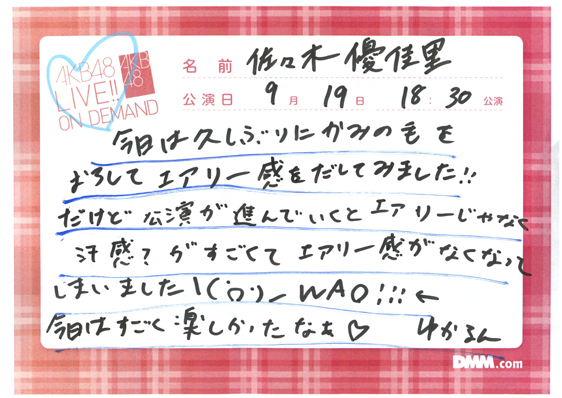 AKB48
LIVE!!
ON DEMAND
AKB
48
名前 佐々木優佳里
公演日 9月19日 18:30公演
今日は久しぶりにかみの毛を
おろしてエアリー感をだしてみました!!
だけど公演が進んでいくとエアリーじゃなく
汗感?がすごくてエアリー感がなくなって
しまいました\('ロ')ー WAO!!!←
今日はすごく楽しかったなぁ♡ ゆかるん
DMM.com